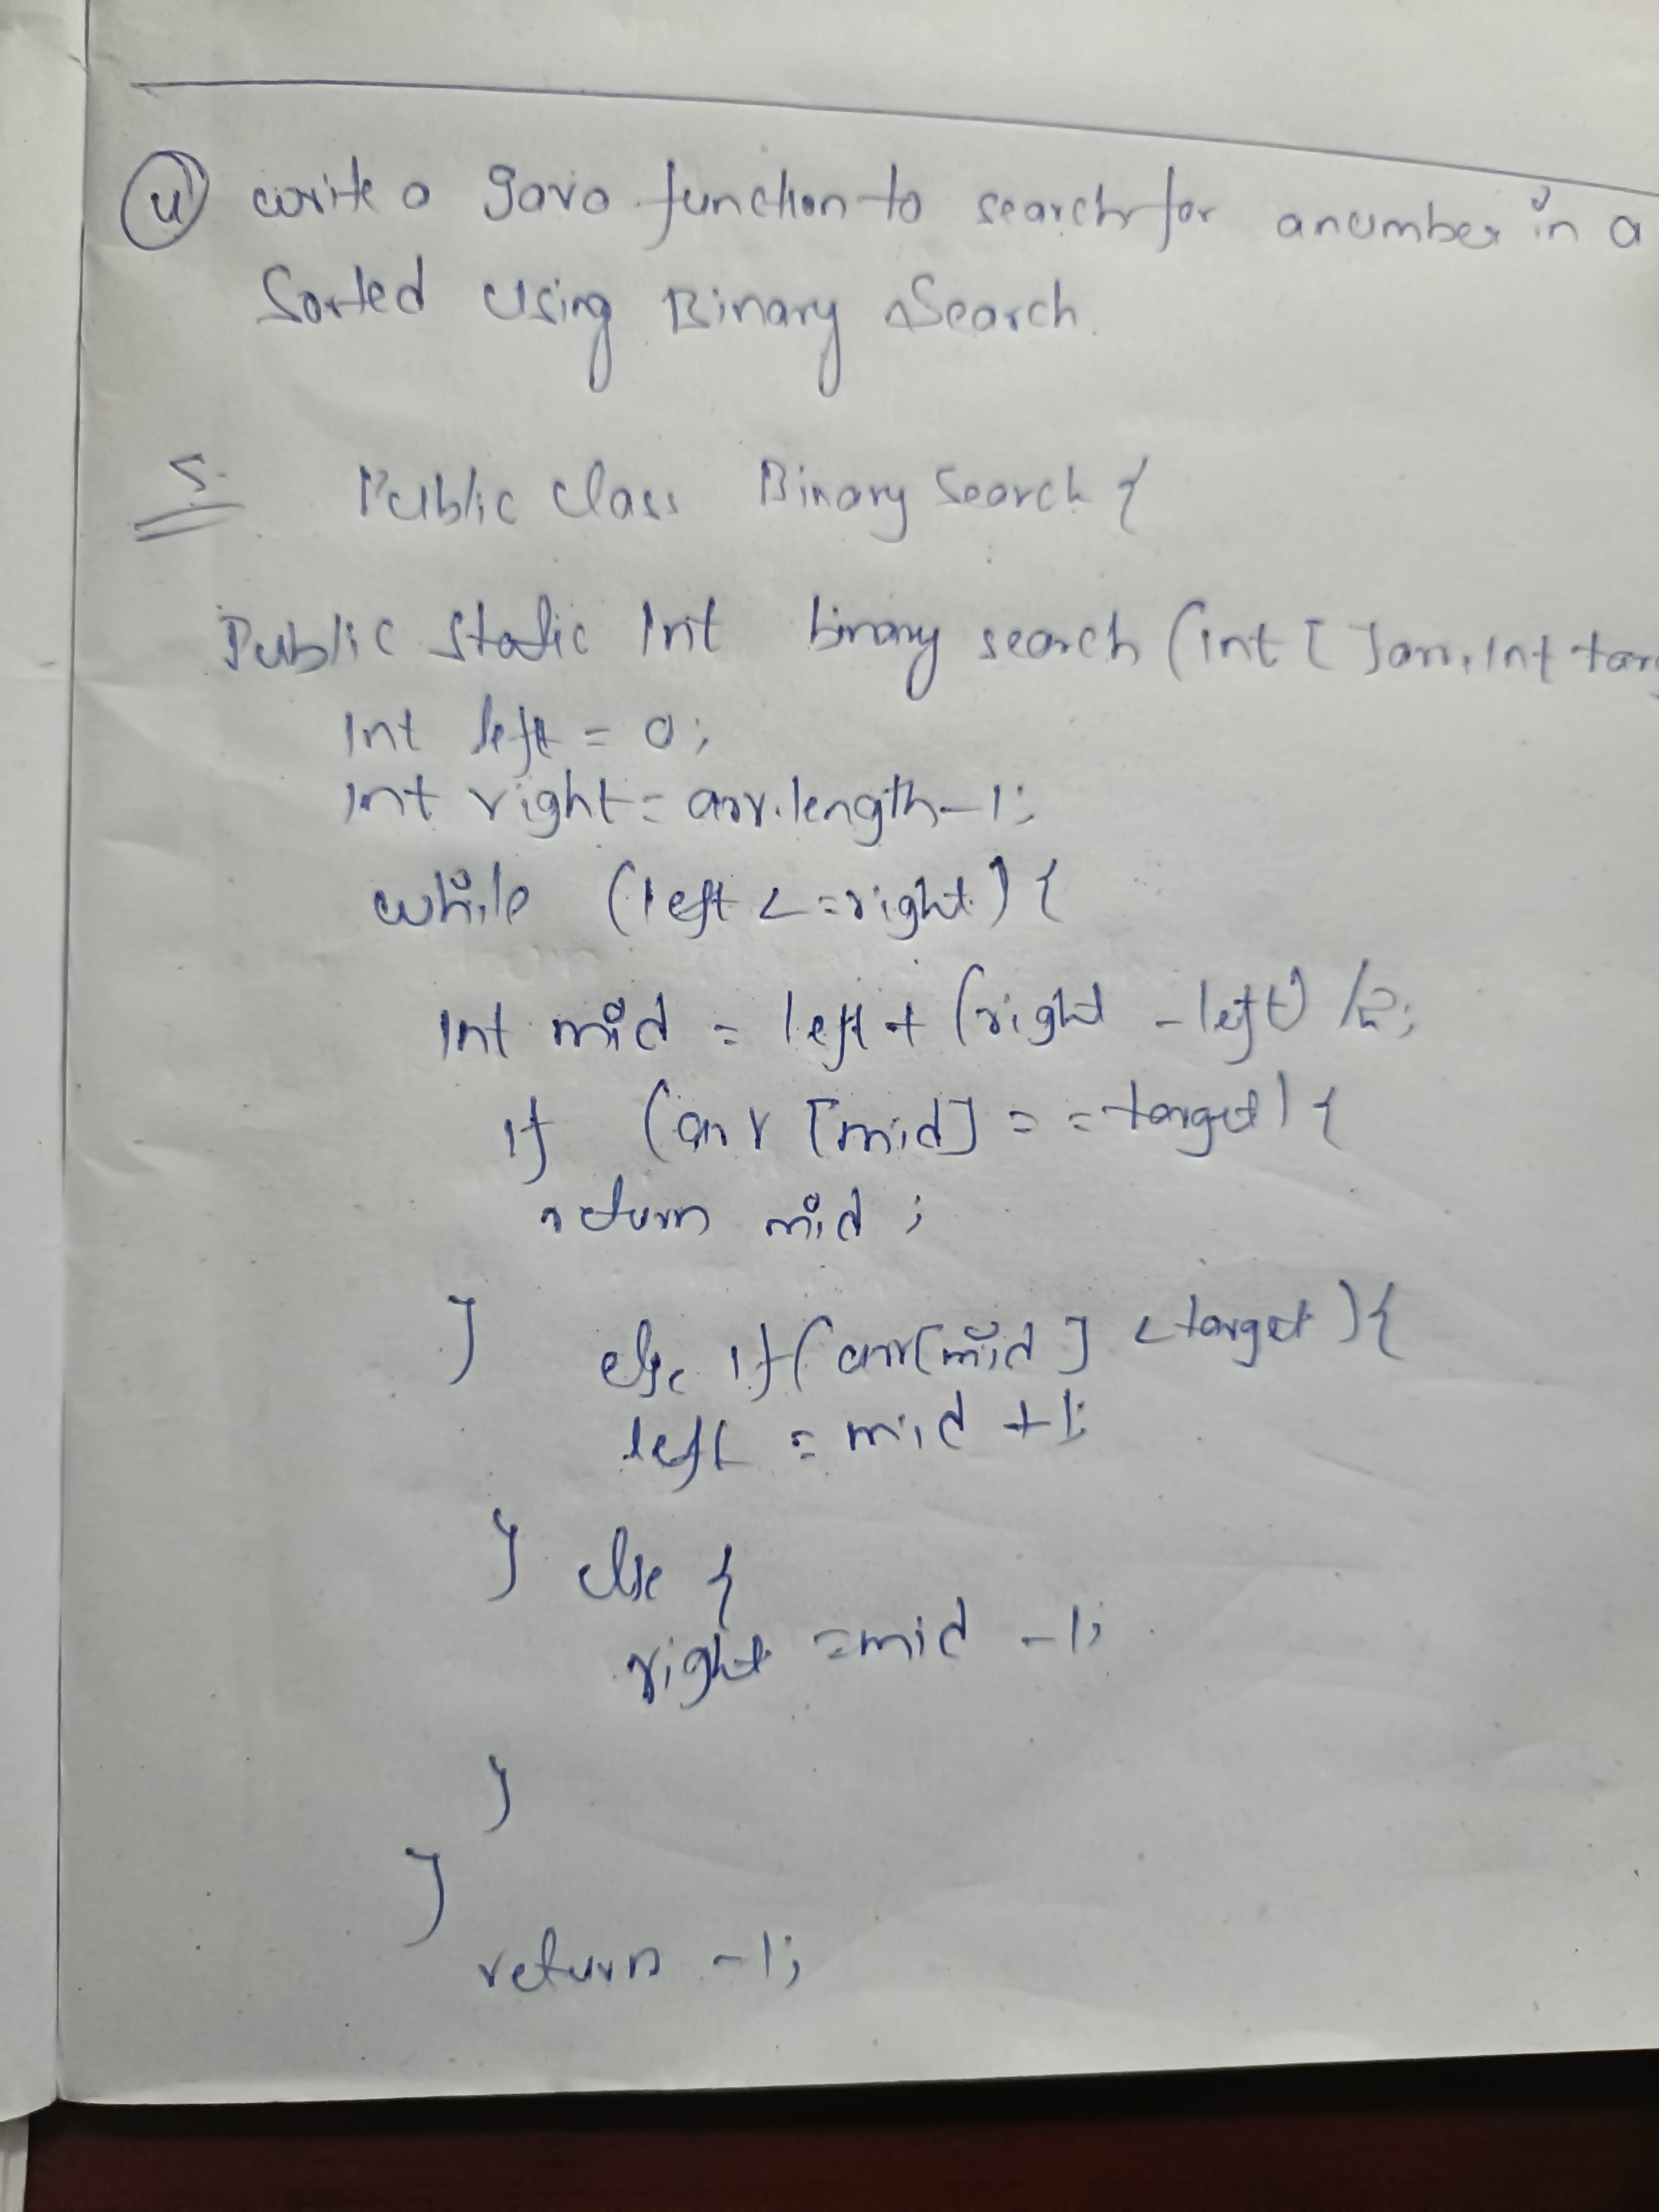 4) write a Java function to search for a number in a
Sorted using Binary Search.
S. Public class Binary Search {
Public Static Int binary search (int [ ] arr, Int tar
Int left = 0;
Int right = arr.length-1;
while (left <= right) {
Int mid = left + (right - left) /2;
if (arr [mid] = = target) {
return mid ;
} else if (arr[mid] < target) {
left = mid +1;
} else {
right = mid -1;
}
}
return -1;